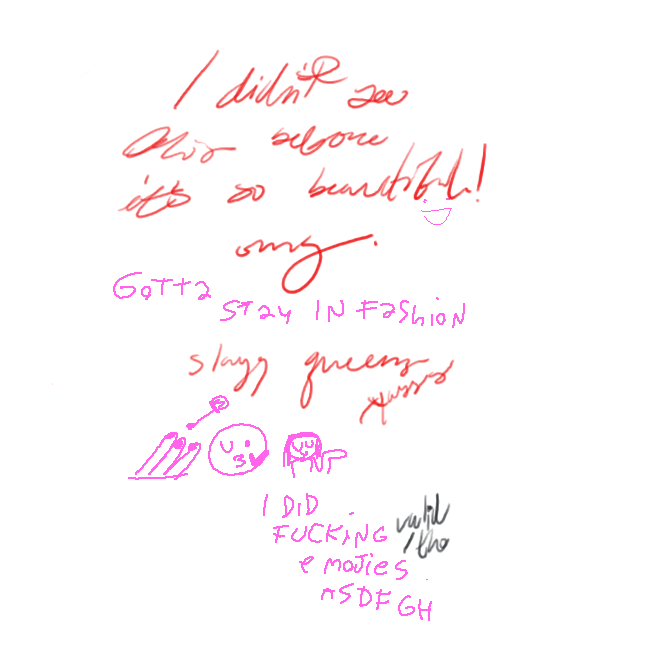 I didn't see
this before
it's so beautiful!
omg.
GOTTa
STay IN FaShION
slayy queens
I DID
FUCKING
valid
tho
emojies
ASDFGH